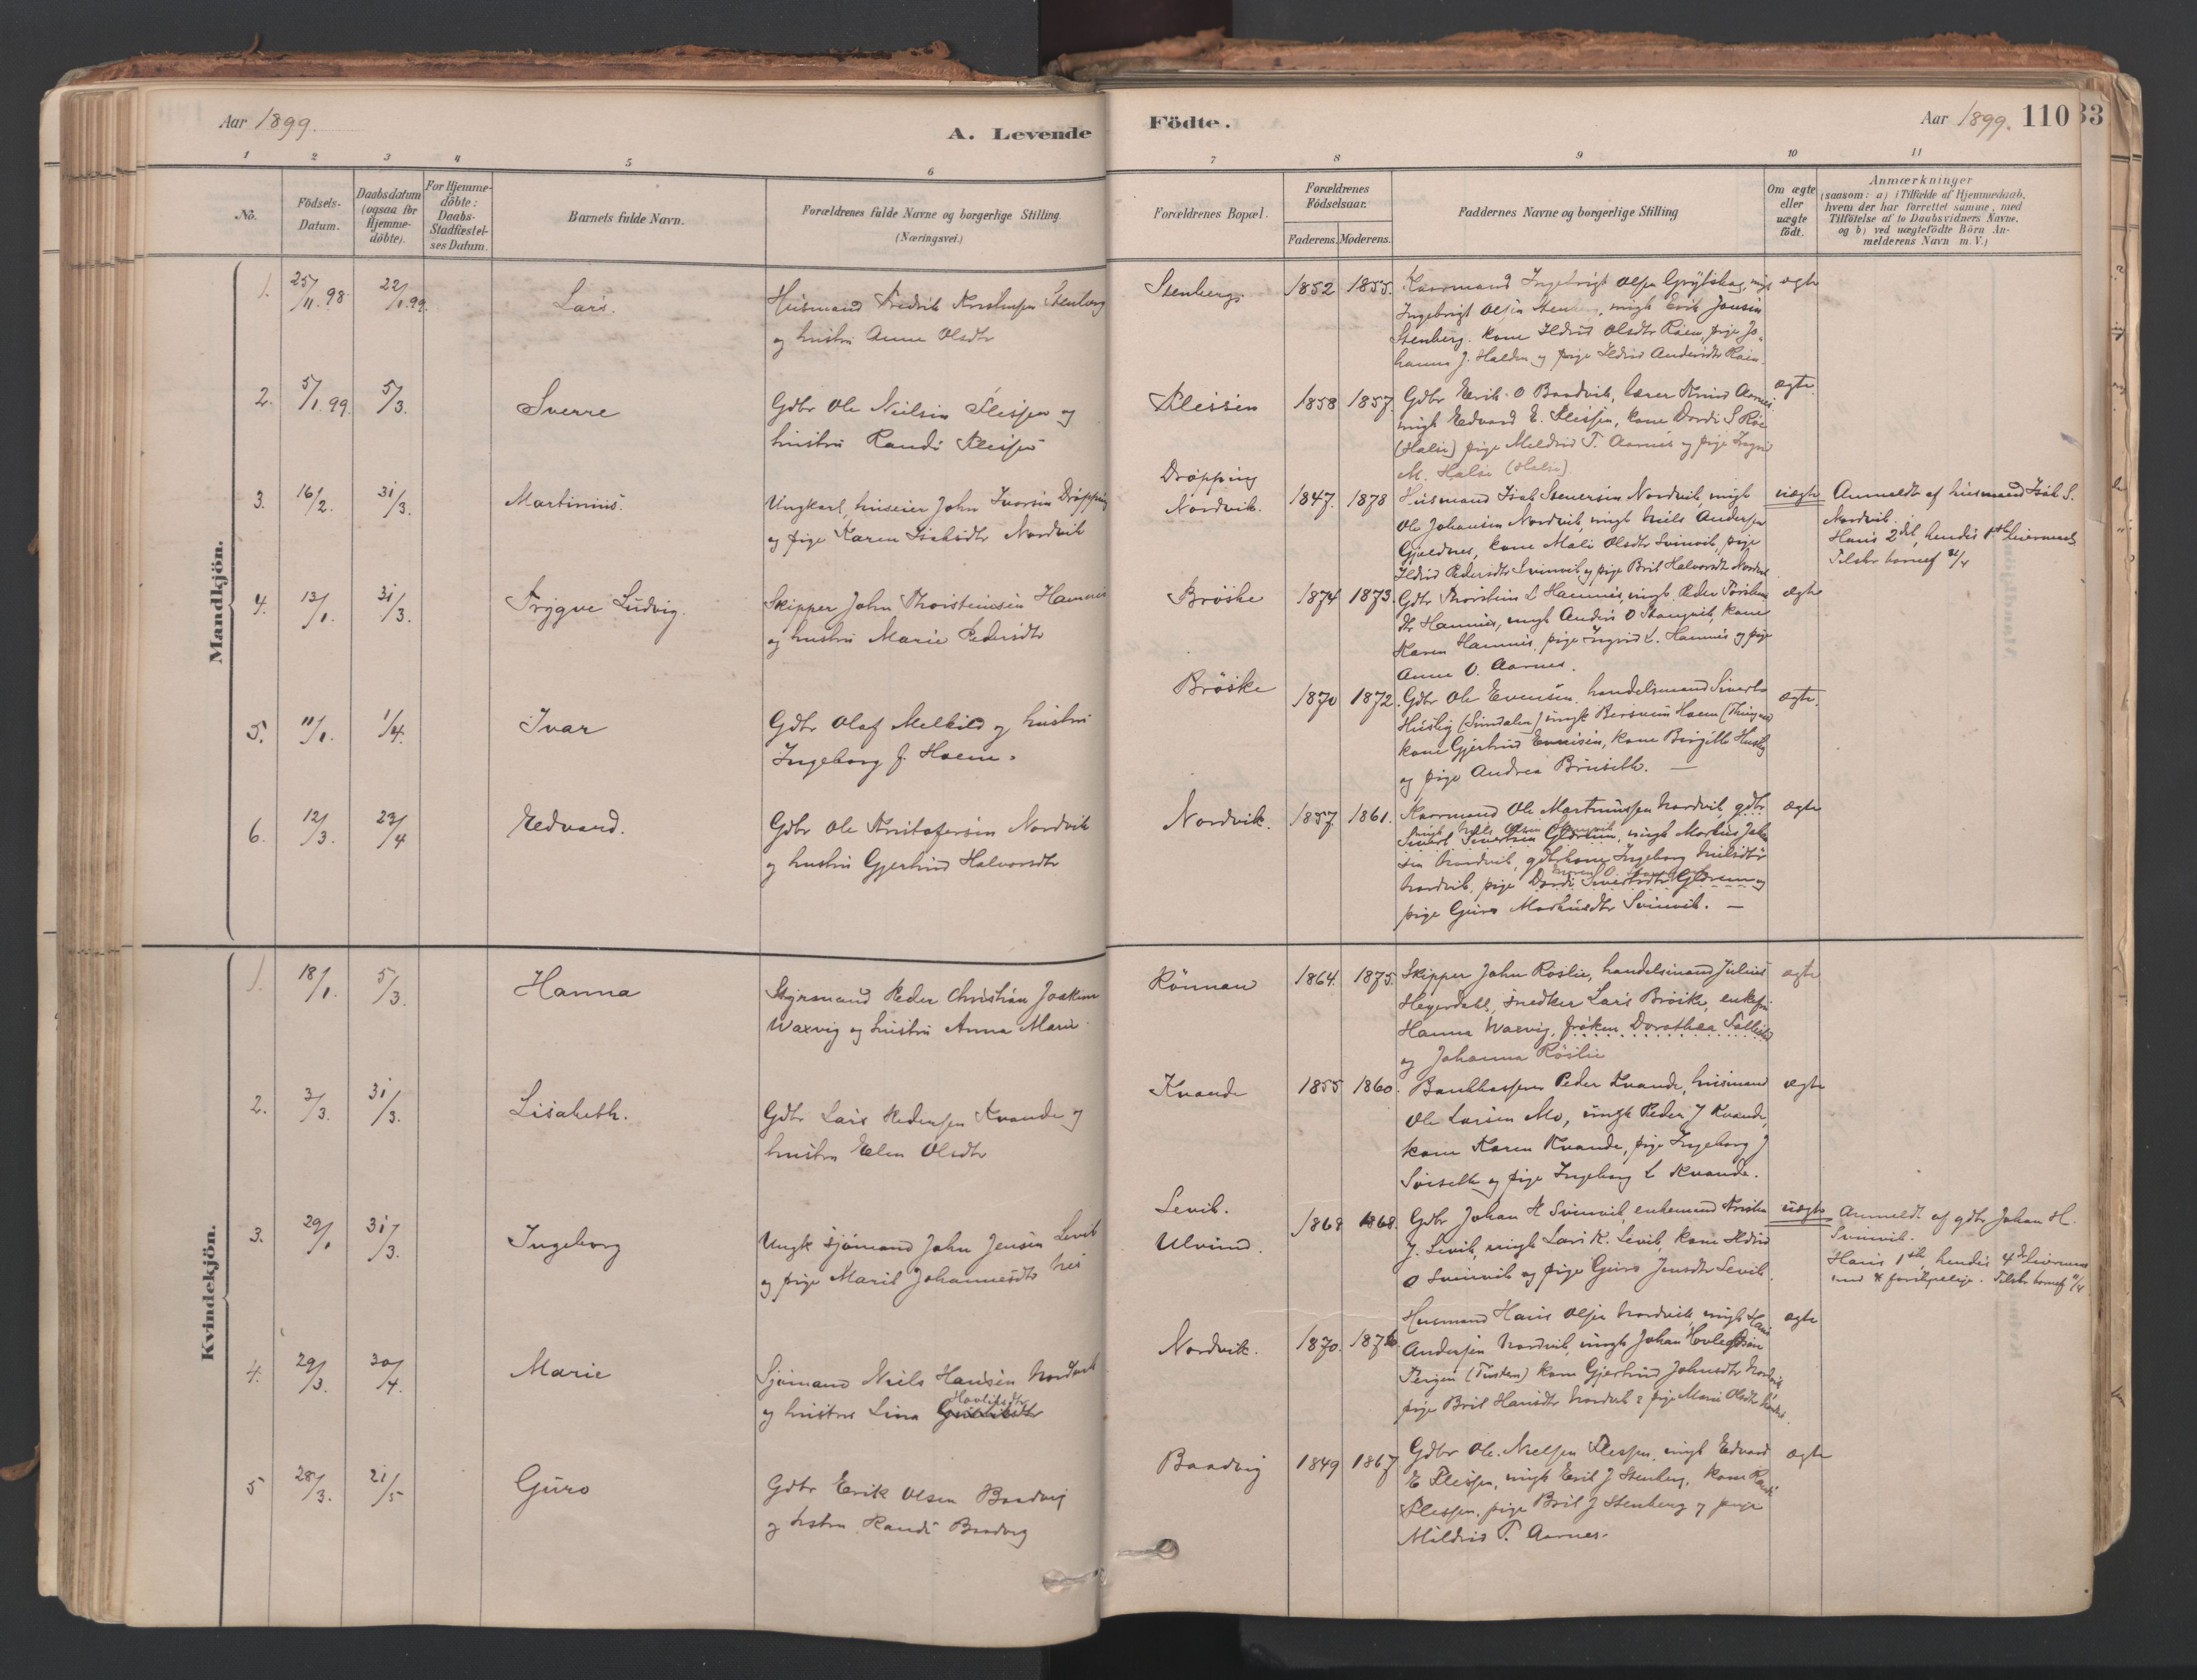 Aar 1899.
A. Levende
Födte.
Aar 1899. 110 33
1 2 3 4 5 6 7 8 9 10 11
No.
Födsels-Datum.
Daabsdatum (ogsaa for Hjemme-döbte).
For Hjemme-döbte: Daabs-Stadfæstel-ses Datum.
Barnets fulde Navn.
Forældrenes fulde Navne og borgerlige Stilling.
(Næringsvei.)
Forældrenes Bopæl.
Forældrenes Födselsaar.
Faderens. Moderens.
Faddernes Navne og borgerlige Stilling
Om ægte eller uægte födt.
Anmærkninger
(saasom: a) i Tilfælde af Hjemmedaab,
hvem der har forrettet samme, med
Tilföielse af to Daabsvidners Navne.
og b) ved uægtefödte Börn An-
melderens Navn m. V.)
Mandkjön.
1. 25/11.98 22/1.99. Lars.
Husmand Fredrik Stenberg
og hustru Anne Olsdtr
Stenberg. 1852 1855.
Ingebrigt Olsen
Ingebrigt Olsen Stenberg, ungk Erik Jonsen
Stenberg. kone Ildrid Olsdtr Røen, pige Jo-
hanna J. Halden og pige Ildrid Andersdtr Røen.
ægte
2. 5/1.99 5/3. Sverre
Gdbr Ole Nielsen Pleisen og
hustru Randi Pleisen
1858 1857.
Gdbr Erik O Baadvik, lærer Knud Aarnes,
ungk Edvard E. Pleisen, kone Dordi S
(Halse) pige Meldrid T. Aarnes og pige
M. Halse (Halse)
ægte
3. 16/2. 31/3. Martinius.
Ungkarl, huseier John Iversen Drøpping
og pige Karen Isaksdtr Nordvik
Drøpping
Nordvik.
1847. 1878
Husmand Isak Steversen Nordvik, ungk
Ole Johansen Nordvik, ungk Niels Andersen
Gjeldnes, kone Mali Olsdtr Svinvik, pige
Ildrid Pedersdtr Svinvik og pige Brit Halvorsdtr Nordvik
uægte
Anmeldt af husmand Isak S.
Nordvik.
Hans 2det, hendes 1ste Leiermaal
4. 13/1. 31/3. Trygve Ludvig.
Skipper John Thorsteinsen Hamnes
og hustru Marie Pedersdtr
Brøske 1874 1873.
Gdbr Thorstein L Hamnes, ungk Peder
Hamnes, ungk Anders O Stangvik, kone
Karen Hamnes, pige Ingrid L. Hamnes og pige
Anne O. Aarnes.
ægte
5. 11/1. 1/4. Ivar
Gdbr Olaf Melkild og hustru
Ingeborg f. Hoem.
Brøske 1870 1872.
Gdbr Ole Evensen, handelsmand Sivert
Husby (Surndalen) ungk Hoem
kone Gjertrud Evensen, kone Birgitte Husby
og pige Andrea Bruseth. —
ægte.
6. 12/3. 23/4 Edvard.
Gdbr Ole Kristofersen Nordvik
og hustru Gjertrud Halvorsdtr
Nordvik. 1857. 1861.
Ole Martinussen Nordvik, gdbr
ungk Niels Olsen
Sivert Sivertsen Glærem, ungk Markus Johan-
sen Nordvik, gdbrkone Ingeborg Nielsdtr
Nordvik, pige Dordi Sivertsdtr Glærem og
pige Guro Markusdtr Svinvik. —
ægte
Kvindekjön.
1. 18/1. 5/3. Hanna
Styrmand Peder Christian Joakim
Waxvig og hustru Anna Marie
Rönnan 1864. 1875.
Skipper John Røslie, handelsmand Julius
Heyerdahl, snedker Lars Brøske, enkefru
Hanna Waxvig, frøken Dorothea
og Johanna Røslie
ægte
2. 3/3. 31/3. Lisabeth.
Gdbr Lars Pedersen Kvande og
hustru Elen Olsdtr
Kvande 1855 1860.
Bankkasserer Peder Kvande, husmand
Ole Larsen Mo, ungk Peder J Kvande,
kone Karen Kvande, pige Ingeborg J
og pige Ingeborg L Kvande.
ægte
3. 29/1 31/3. Ingeborg
Ungk sjömand John Jensen Levik
og pige Marit Johannesdtr
Levik.
Ulvund.
1868 1868.
Gdbr Johan H Svinvik, enkemand Kristen
J. Levik, ungk Lars K. Levik, kone Ildrid
O Svinvik og pige Guro Jensdtr Levik.
uægte
Anmeldt af gdbr Johan H.
Svinvik.
Hans 1ste, hendes 4de Leiermaal
4. 29/3. 30/4. Marie
Sjömand Niels Hansen Nordvik
og hustru Lina Hovlesdtr
Nordvik. 1870. 1876.
Husmand Hans Olsen Nordvik, ungk Hans
Andersen Nordvik, ungk Johan
(Tustern) kone Gjertrud Johnsdtr Nordvik
pige Brit Hansdtr Nordvik & pige Marie Olsdtr
ægte
5 28/3. 21/5 Guro
Gdbr Erik Olsen Baadvig
og hustru Randi Baadvig
Baadvig 1849 1867
Gdbr Ole Nielsen Plessen, ungk Edvard
E Plessen, ungk Erik J Stenberg, kone Randi
Plessen, pige Brit J Stenberg og pige
Mildrid T. Aarnes.
ægte